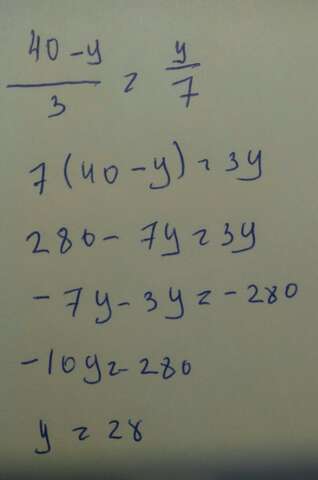 40-y/3 = y/7
7(40-y)=3y
280-7y=3y
-7y-3y=-280
-10y=-280
y=28